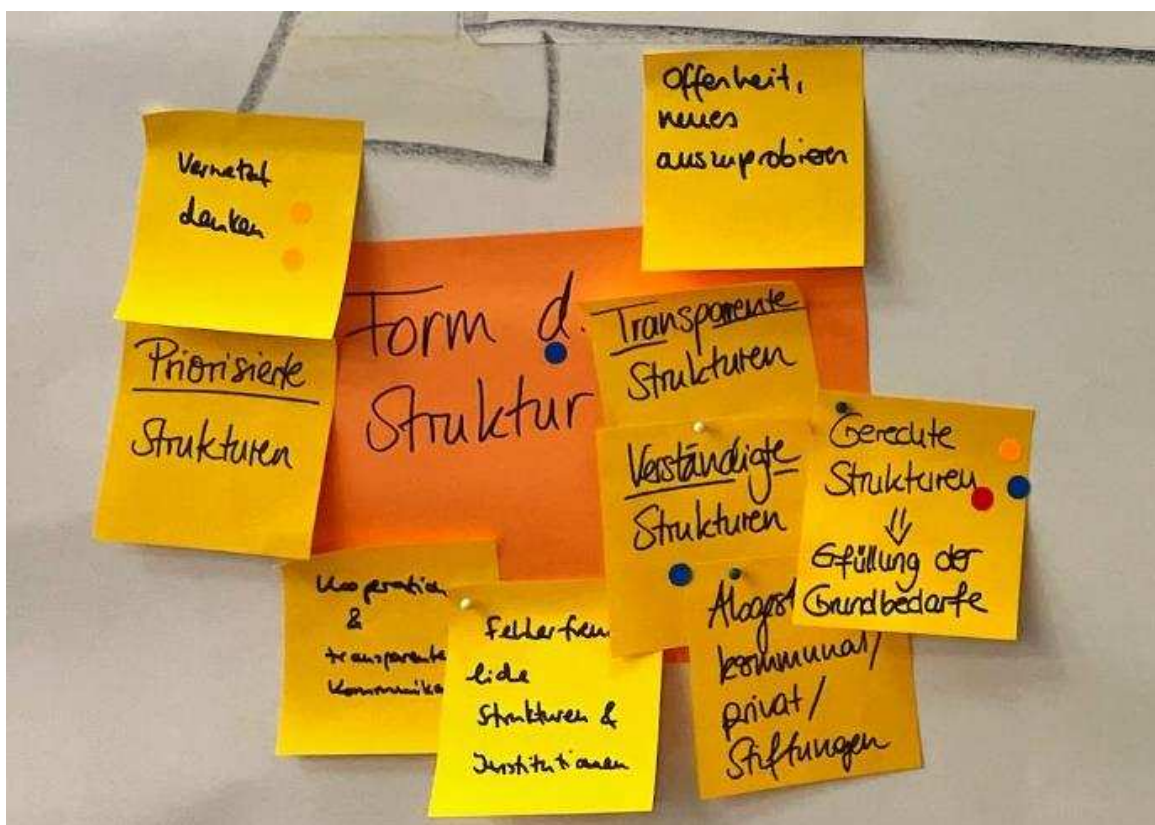 Offenheit,
neues
auszuprobieren
Vernetzt
denken
Form d.
Struktur
Transparente
Strukturen
Priorisierte
Strukturen
Verständigte
Strukturen
Gerechte
Strukturen
⇓
Erfüllung der
Grundbedarfe
Kooperation
&
transparente
Kommunika
Fehlerfreund
liche
Strukturen &
Institutionen
kommunal/
privat/
Stiftungen